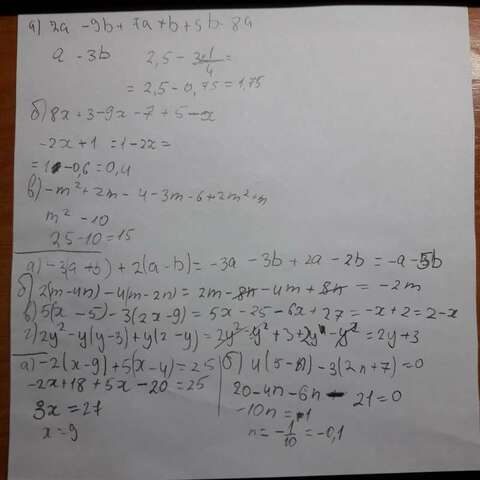 а) 2a - 9b + 7a + b + 5b - 8a
a - 3b   2,5 - 3·1/4 =
= 2,5 - 0,75 = 1,75
б) 8x + 3 - 9x - 7 + 5 - x
-2x + 1 = 1 - 2x =
= 1 - 0,6 = 0,4
в) -m² + 2m - 4 - 3m - 6 + 2m² + m
m² - 10
25 - 10 = 15
а) -3(a + b) + 2(a - b) = -3a - 3b + 2a - 2b = -a - 5b
б) 2(m - 4n) - 4(m - 2n) = 2m - 8n - 4m + 8n = -2m
в) 5(x - 5) - 3(2x - 9) = 5x - 25 - 6x + 27 = -x + 2 = 2 - x
г) 2y² - y(y - 3) + y(2 - y) = 2y² - y² + 3 + 2y - y² = 2y + 3
а) -2(x - 9) + 5(x - 4) = 25
-2x + 18 + 5x - 20 = 25
3x = 27
x = 9
б) 4(5 - n) - 3(2n + 7) = 0
20 - 4n - 6n - 21 = 0
-10n = 1
n = -1/10 = -0,1